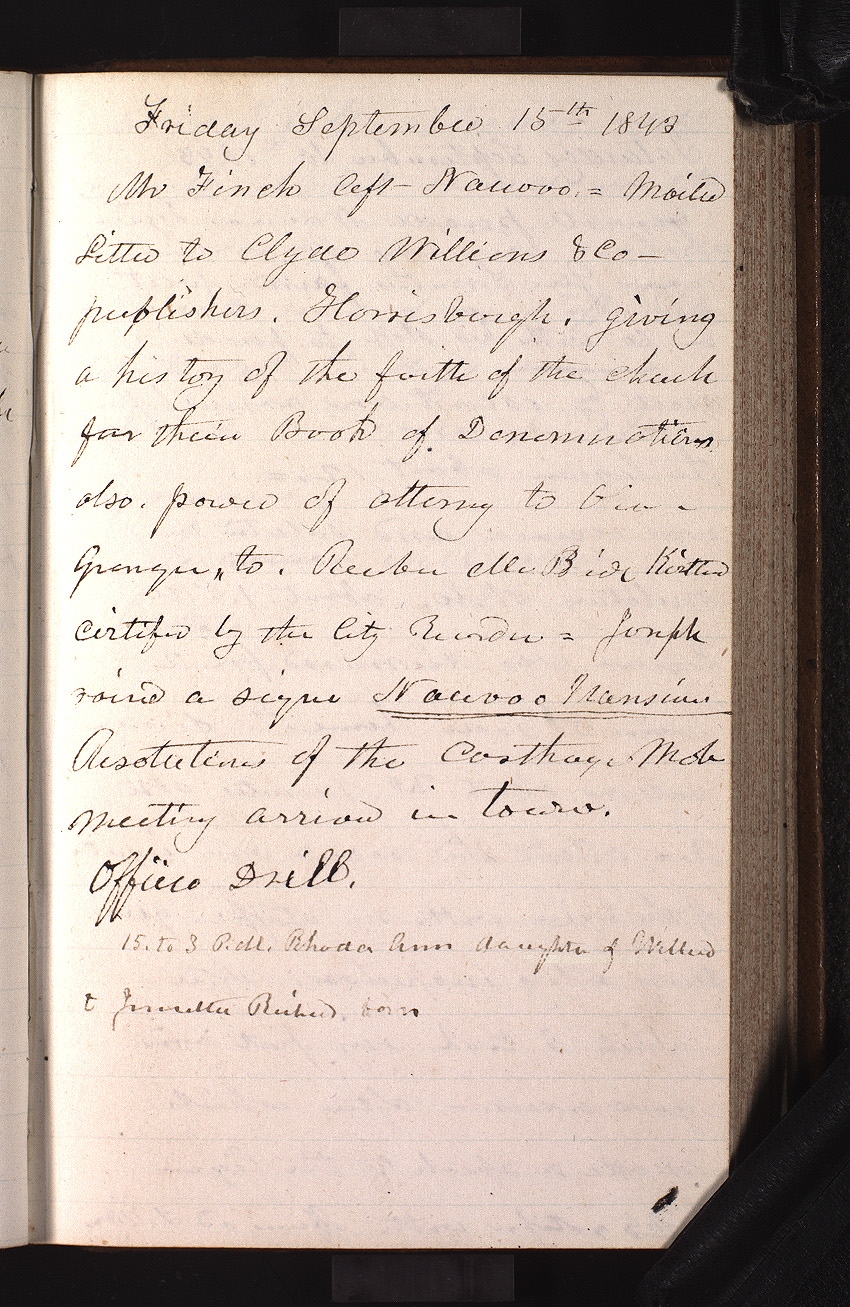 Friday September 15th 1843
Mr Finch left Nauvoo. = Mailed
Letter to Clyde Williams & Co –
publishers. Harrisburgh. giving
a history of the faith of the church
for their Book of Denominations
also. power of attorney to Oliver
Granger, to. Reuben McBride Kirtland
certified by the City Recorder = Joseph
raised a signe Nauvoo Mansion
Resolutions of the Carthage Mob
meeting arrived in town.
Officer Drill.
15. to 3 P.M. Rhoda Ann daughter of Willard
& Jennetta Richards. born